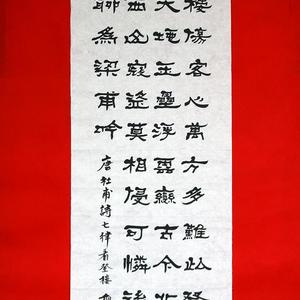 樓傷客心萬方多難此登
天地玉壘浮雲變古今北
西山寇盜莫相侵可憐後
聊為梁甫吟
唐杜甫詩七律登樓